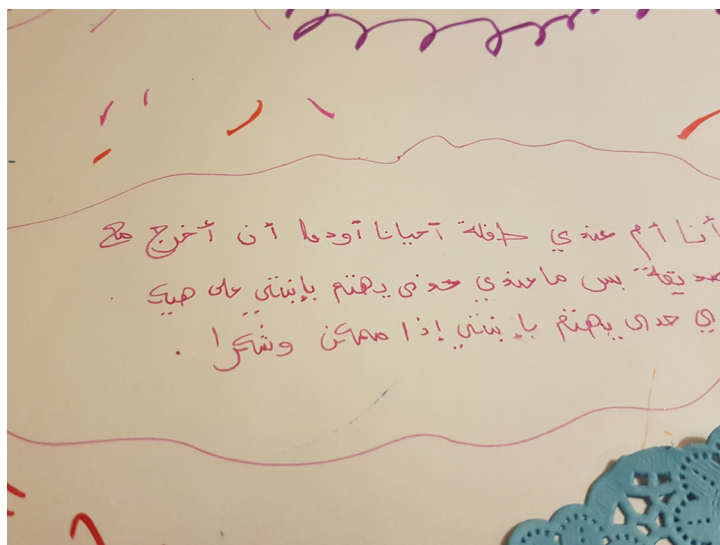 أنا أم عندي طفلة أحيانا أود أن أخرج مع
صديقة بس ما عندي حدى يهتم بإبنتي على هيك
حدى يهتم بإبنتي إذا ممكن وشكرا .